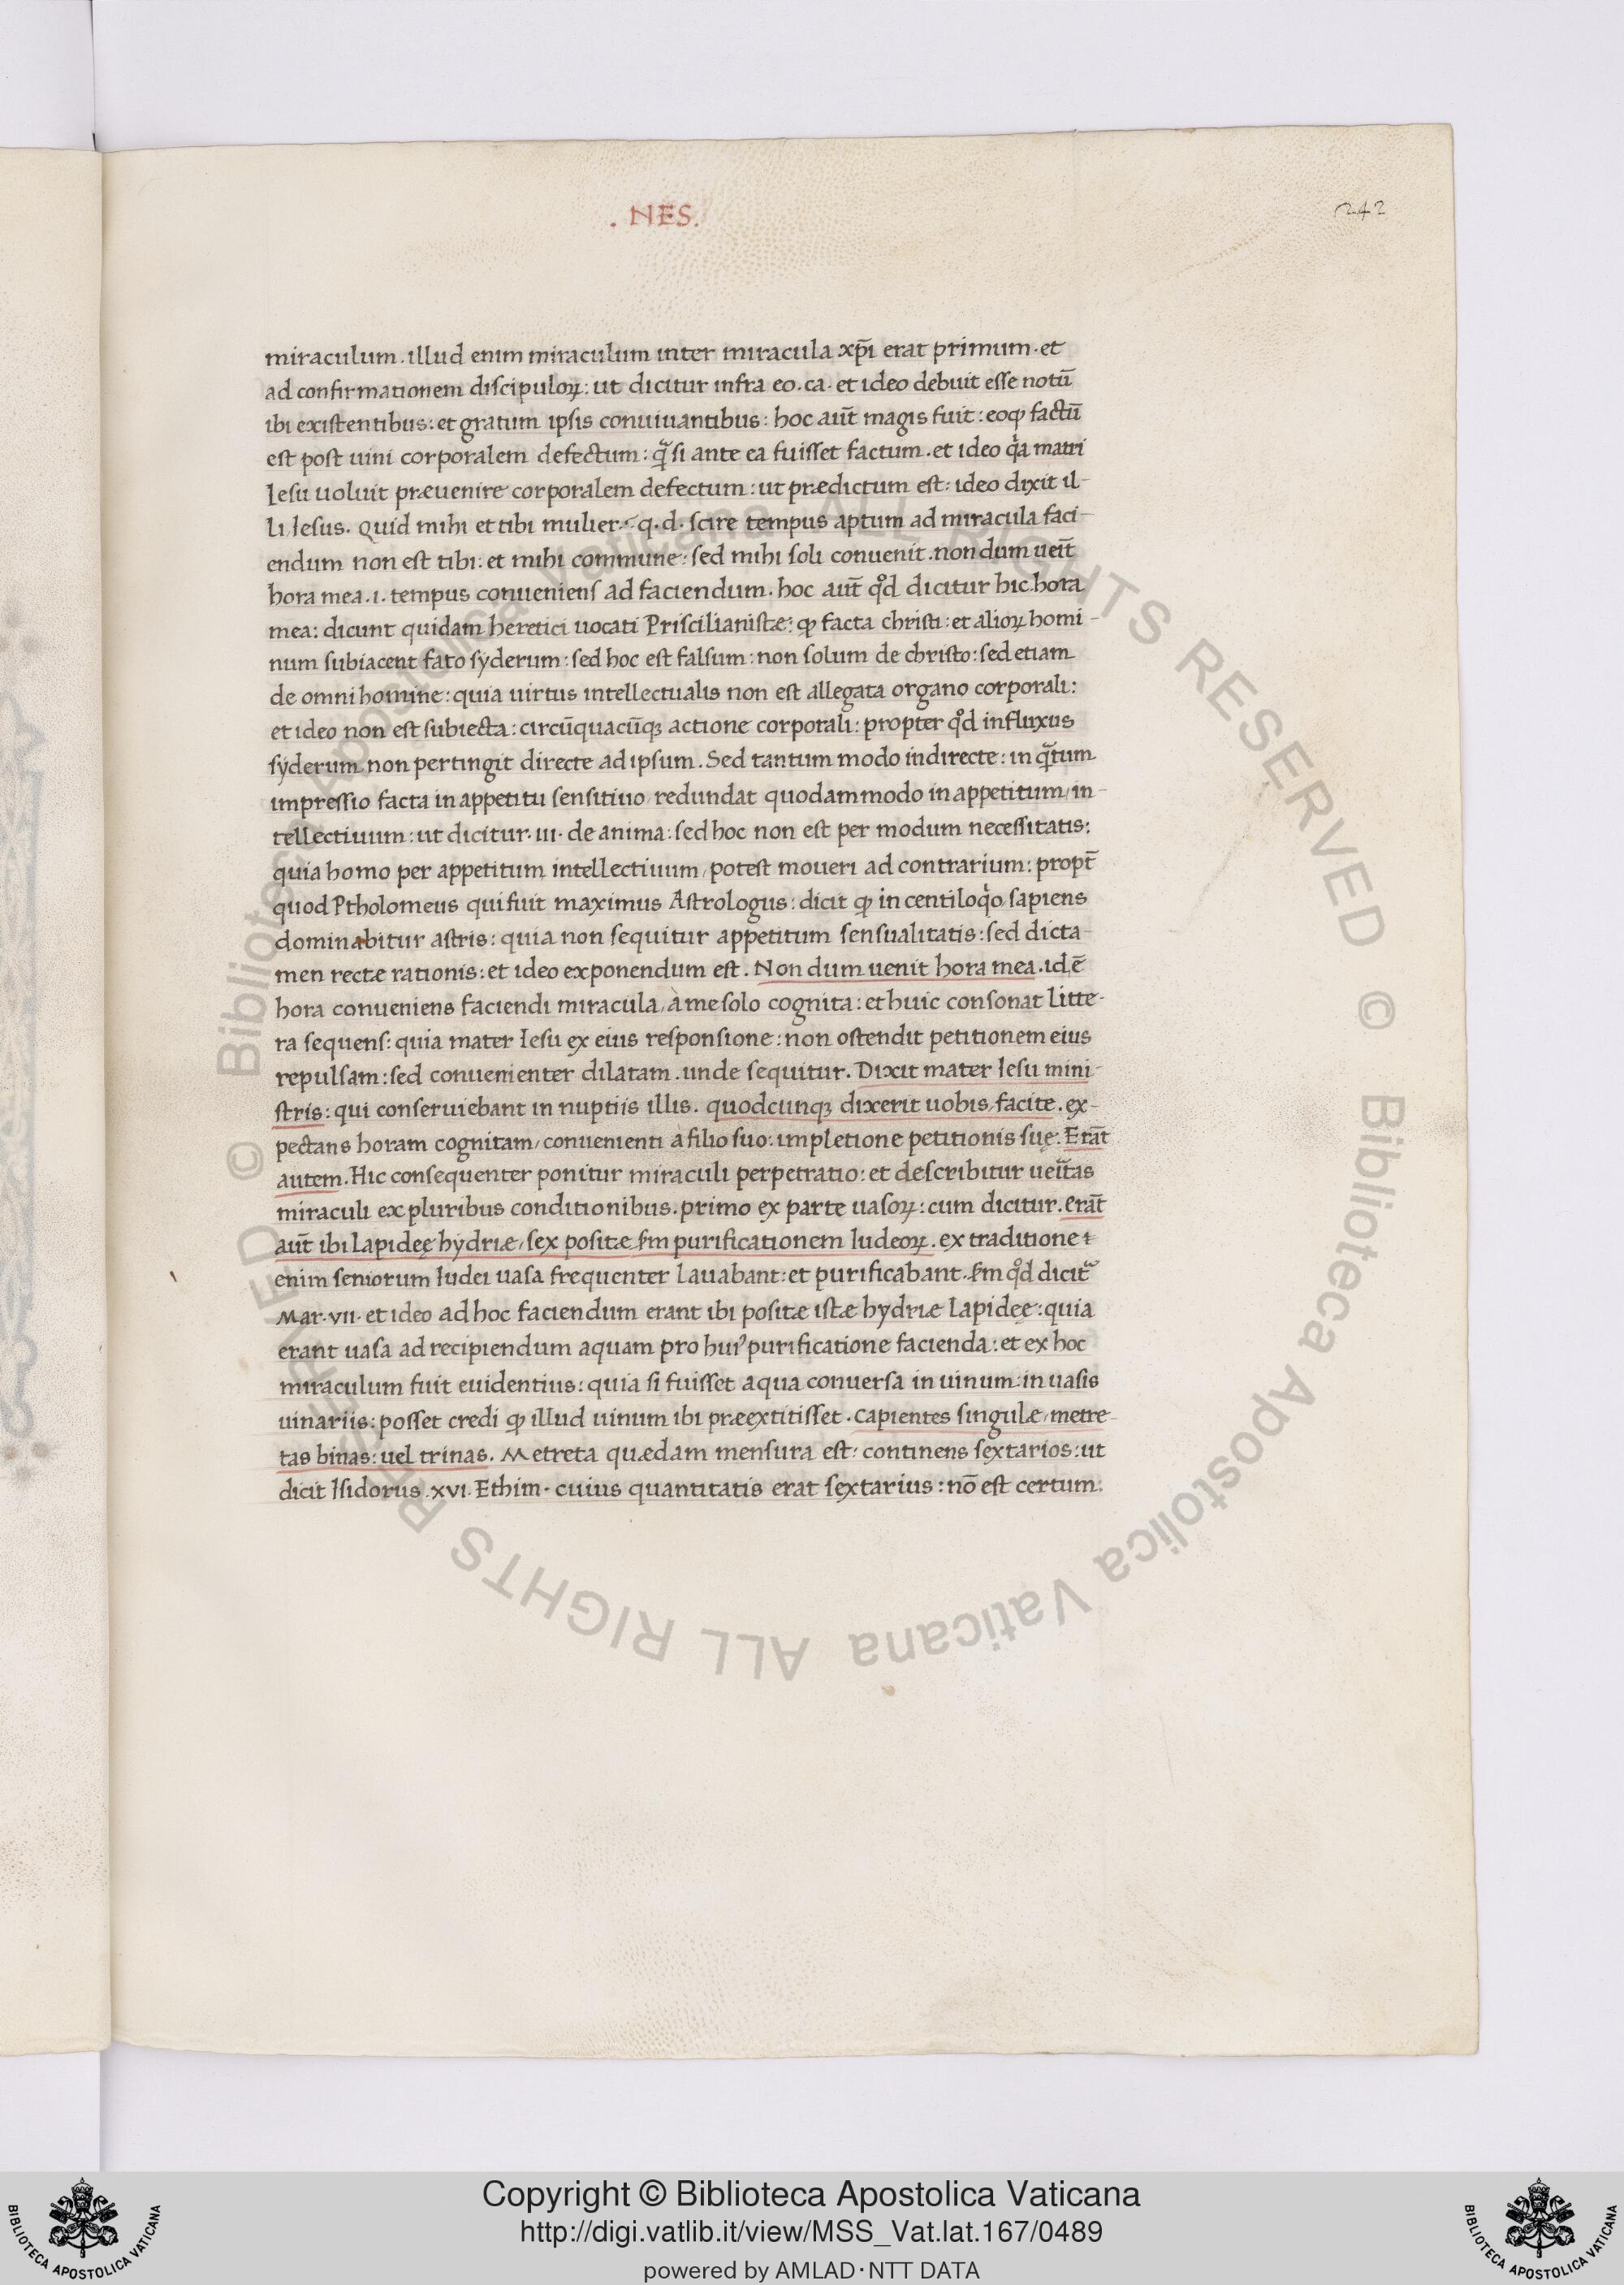 . NES.
242
miraculum. illud enim miraculum inter miracula xp̄i erat primum. et
ad confirmationem discipuloꝝ: ut dicitur infra eo. ca. et ideo debuit esse notū
ibi existentibus: et gratum ipsis conuiuantibus: hoc aut̄ magis fuit: eoꝙ factū
est post uini corporalem defectum: q̃ si ante ea fuisset factum. et ideo qͥa matri
Iesu uoluit præuenire corporalem defectum: ut prædictum est: ideo dixit il-
li Iesus. Quid mihi et tibi mulier. q. d. scire tempus aptum ad miracula faci-
endum non est tibi: et mihi commune: sed mihi soli conuenit. nondum ueit̄
hora mea. i. tempus conueniens ad faciendum. hoc aut̄ qͦd dicitur hic. hora
mea: dicunt quidam heretici uocati Priscilianistæ: ꝙ facta christi: et alioꝝ homi-
num subiacent fato sẏderum: sed hoc est falsum: non solum de christo: sed etiam
de omni homine: quia uirtus intellectualis non est allegata organo corporali:
et ideo non est subiecta: circūquacūqꝫ actione corporali: propter qͦd influxus
sẏderum non pertingit directe ad ipsum. Sed tantum modo indirecte: in q̃tum
impressio facta in appetitu sensitiuo redundat quodammodo in appetitum, in-
tellectiuum: ut dicitur. III. de anima: sed hoc non est per modum necessitatis:
quia homo per appetitum intellectiuum, potest moueri ad contrarium: propt̄
quod Ptholomeus qui fuit maximus Astrologus: dicit ꝙ in centiloqͥo, sapiens
dominabitur astris: quia non sequitur appetitum sensualitatis: sed dicta-
men rectæ rationis: et ideo exponendum est. Non dum uenit hora mea. id ē
hora conueniens faciendi miracula, à me solo cognita: et huic consonat litte-
ra sequens: quia mater Iesu ex eius responsione: non ostendit petitionem eius
repulsam: sed conuenienter dilatam. unde sequitur. Dixit mater Iesu mini-
stris: qui conseruiebant in nuptiis illis. quodcunqꝫ dixerit uobis, facite. ex-
pectans horam cognitam, conuenienti a filio suo: impletione petitionis suę. Erāt
autem. Hic consequenter ponitur miraculi perpetratio: et describitur uei̅tas
miraculi ex pluribus conditionibus. primo ex parte uasoꝝ: cum dicitur. erāt
aut̄ ibi lapideę hẏdriæ, sex positæ ſm purificationem Iudeoꝝ. ex traditione
enim seniorum Iudei uasa frequenter lauabant: et purificabant. ſm qͦd dicit᷑
Mar. VII. et ideo ad hoc faciendum erant ibi positæ istæ hydriæ lapideę: quia
erant uasa ad recipiendum aquam pro huiꝰ purificatione facienda: et ex hoc
miraculum fuit euidentius: quia si fuisset aqua conuersa in uinum: in uasis
uinariis: posset credi ꝙ illud uinum ibi præextitisset. capientes singulæ, metre-
tas binas: uel trinas. Metreta quædam mensura est: continens sextarios: ut
dicit Isidorus. XVI. Ethim. cuius quantitatis erat sextarius: nō est certum:
© Biblioteca Apostolica Vaticana ALL RIGHTS RESERVED © Biblioteca Apostolica Vaticana ALL RIGHTS RESERVED
Copyright © Biblioteca Apostolica Vaticana
http://digi.vatlib.it/view/MSS_Vat.lat.167/0489
powered by AMLAD·NTT DATA
BIBLIOTECA APOSTOLICA VATICANA
BIBLIOTECA APOSTOLICA VATICANA